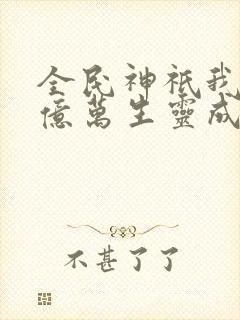 全民神祇我
億萬生靈成
不甚了了